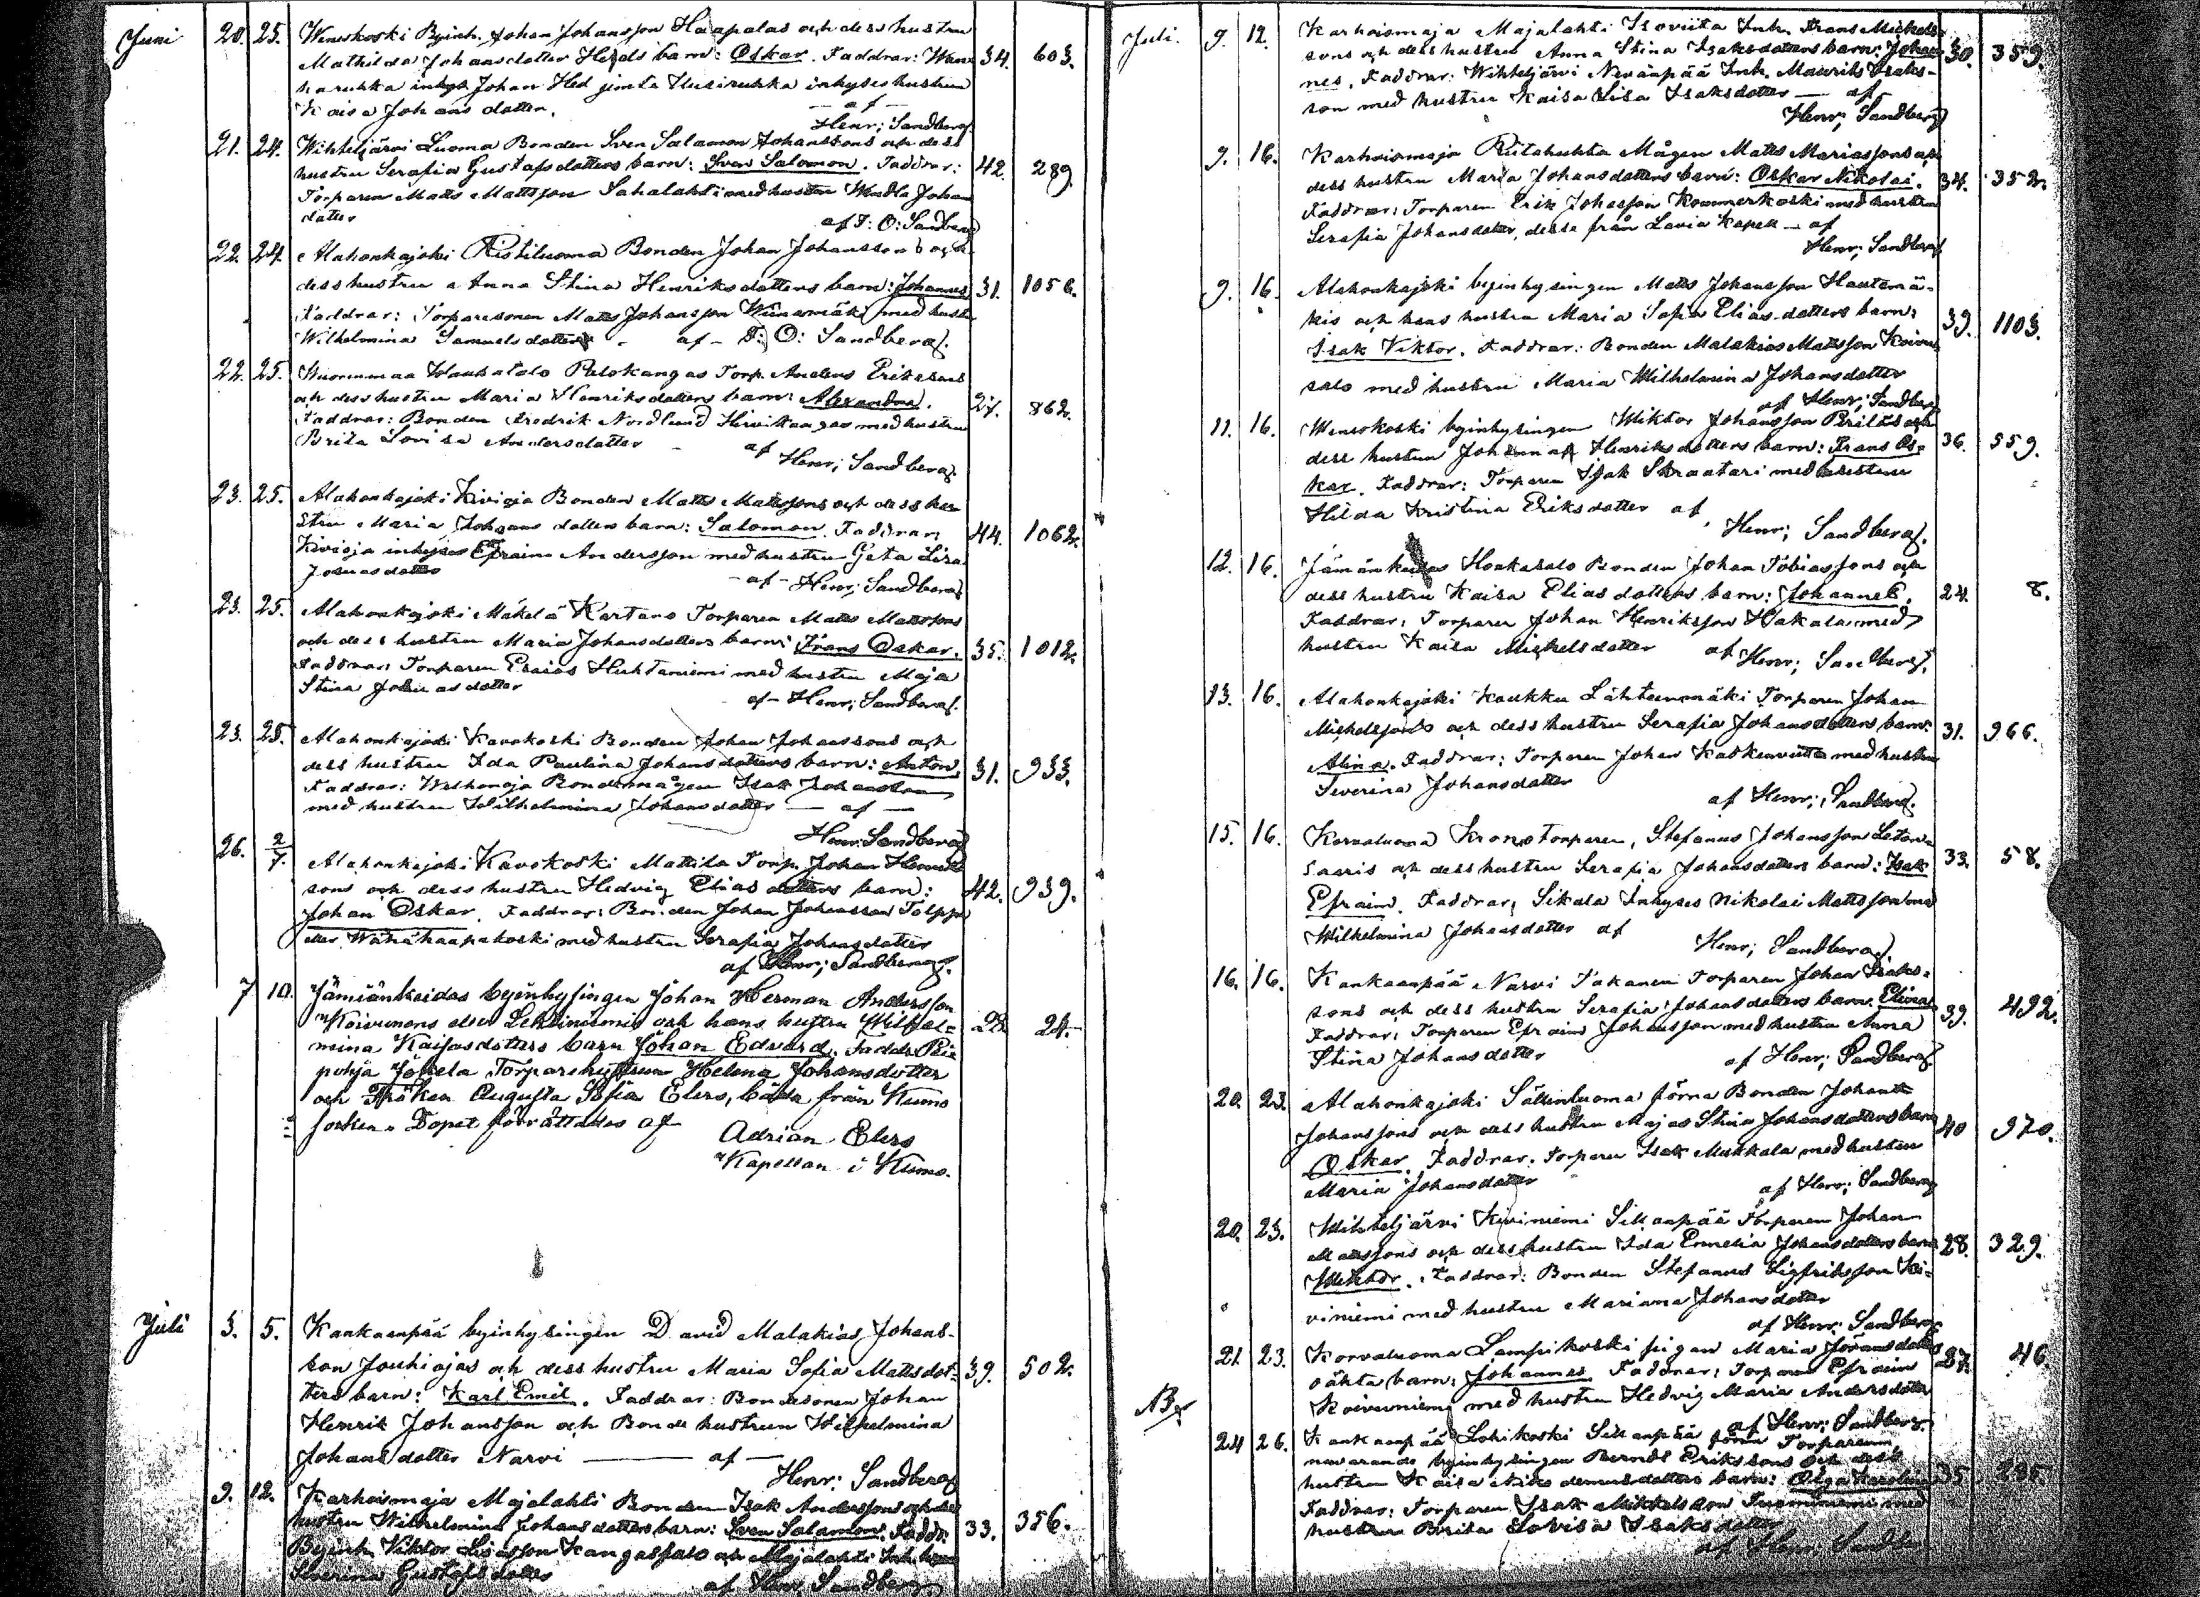 Juni 20. 25. Weneskoski Byinh. Johan Johansson Haapalas och dess hustru
Mathilda Johansdotter Heds barn: Oskar. Faddrar: 34. 603.
inhys. Johan Hed jemte inhyses hustrun
Kaisa Johansdotter. — af —
Henr; Sandberg.
21. 24. Wihteljärvi Luoma Bonden Sven Salomon Johanssons och dess
hustru Serafia Gustafsdotters barn: Sven Salomon. Faddrar: 42. 289.
Torparen Matts Mattsson Sahalahti med hustru Wendla Johans
dotter af F: O: Sandberg
22. 24. Alahonkajoki Ristiluoma Bonden Johan Johanssons och
dess hustru Anna Stina Henriksdotters barn: Johannes 31. 1056.
Faddrar: Torparesonen Matts Johansson med hustru
Wilhelmina Samuelsdotter. af – F: O: Sandberg.
22. 25. Palokangas Torp. Anders Erikssons
och dess hustru Maria Henriksdotters barn: Alexandra. 27. 862.
Faddrar: Bonden Fredrik Nordlund Hirvikangas med hustru
Brita Lovisa Andersdotter – af
Henr; Sandberg.
23. 25. Alahonkajoki Kivioja Bonden Matts Mattssons och dess hu
stru Maria Johansdotters barn: Salomon. Faddrar: 44. 1062.
Kivioja inhyses Efraim Andersson med hustru Greta Lisa
Josuasdotter – af – Henr; Sandberg
23. 25. Alahonkajoki Mäkelä Kartano Torparen Matts Mattssons
och dess hustru Maria Johansdotters barn: Frans Oskar. 35. 1012.
Faddrar: Torparen Esaias Huhtaniemi med hustru Maja
Stina Josuasdotter af – Henr; Sandberg.
23. 25. Alahonkajoki Kavokoski Bonden Johan Johanssons och
dess hustru Ida Paulina Johansdotters barn: Anton. 31. 933.
Faddrar: Bondemågen Isak Johansson
med hustru Wilhelmina Johansdotter — af —
Henr: Sandberg
26. 2/7. Alahonkajoki Kavokoski Mattila Torp. Johan Henriks
sons och dess hustru Hedvig Eliasdotters barn: 42. 939.
Johan Oskar. Faddrar: Bonden Johan Johansson
eller Wähähaapakoski med hustru Serafia Johansdotter
af Henr; Sandberg.
7 10. Jämiänkeidas byinhysingen Johan Herman Andersson
Koivunens eller Lehtiniemis och hans hustru Wilhel-
mina Kaisasdotters barn Johan Edvard. Faddr. 22 24.
pohja Jokela Torparehustrun Helena Johansdotter
och Fröken Augusta Sofia Elers, båda från Kumo
socken. Dopet förrättades af
Adrian Elers
Kapellan i Kumo.
Juli 3. 5. Kankaanpää byinhysingen David Malakias Johans-
son Jouhiojas och dess hustru Maria Sofia Mattsdot- 39. 502.
ters barn: Karl Emil. Faddrar: Bondesonen Johan
Henrik Johansson och Bondehustrun Wilhelmina
Johansdotter Narvi — af —
Henr: Sandberg
9. 12. Karhoismaja Majalahti Bonden Isak Anderssons och dess
hustru Wilhelmina Johansdotters barn: Sven Salomon. Faddr. 33. 356.
Byinh. Viktor Kangassalo och Majalahti Inh.
Severina Gustafsdotter
af Henr Sandberg
Juli. 9. 12. Karhoismaja Majalahti Isoviita Inh. Frans Michels-
sons och dess hustru Anna Stina Isaksdotters barn: Johan 30. 359.
nes. Faddrar: Wihteljärvi Nevanpää Inh. Maurits Isaks-
son med hustru Kaisa Lisa Isaksdotter — af
Henr; Sandberg
9. 16. Karhoismaja Riitahuhta Mågen Matts Mariassons och
dess hustru Maria Johansdotters barn: Oskar Nikolai. 34. 352.
Faddrar: Torparen Erik Johansson Kommerkoski med hustru
Serafia Johansdotter, desse från Lavia Kapell – af
Henr; Sandberg
9. 16. Alahonkajoki byinhysingen Matts Johansson Hautamä-
kis och hans hustru Maria Sofia Eliasdotters barn: 39. 1103.
Isak Viktor. Faddrar: Bonden Malakias Mattsson Koivu
salo med hustru Maria Wilhelmina Johansdotter
af Henr; Sandberg
11. 16. Weneskoski byinhysingen Wiktor Johansson och
dess hustru Johanna Henriksdotters barn: Frans Os- 36. 559.
kar. Faddrar: Torparen Isak Skraatari med hustru
Hilda Kristina Eriksdotter af
Henr; Sandberg.
12. 16. Jämiänkeidas Honkasalo Bonden Johan Tobiassons och
dess hustru Kaisa Eliasdotters barn: Johannes. 24. 8.
Faddrar: Torparen Johan Henriksson Hakala med
hustru Kaisa Michelsdotter af Henr; Sandberg.
13. 16. Alahonkajoki Kaukku Lähteenmäki Torparen Johan
Michelssons och dess hustru Serafia Johansdotters barn: 31. 966.
Alina. Faddrar: Torparen Johan Katkenviitta med hustru
Severina Johansdotter
af Henr; Sandberg.
15. 16. Korvaluoma Kronotorparen, Stefanus Johansson
saaris och dess hustru Serafia Johansdotters barn: Isak 33. 58.
Efraim. Faddrar: Sikala Inhyses Nikolai Mattsson med
Wilhelmina Johansdotter af
Henr; Sandberg.
16. 16. Kankaanpää Narvi Takanen Torparen Johan Isaks-
sons och dess hustru Serafia Johansdotters barn: Elina. 39. 492.
Faddrar: Torparen Efraim Johansson med hustru Anna
Stina Johansdotter af Henr; Sandberg
20. 23. Alahonkajoki Sällinluoma förra Bonden Johan
Johanssons och dess hustru Maja Stina Johansdotters barn 40 970.
Oskar. Faddrar: Torparen Isak Mukkala med hustru
Maria Johansdotter
af Henr; Sandberg
20. 23. Wihteljärvi Kiviniemi Sillanpää Torparen Johan
Mattssons och dess hustru Ida Emelia Johansdotters barn 28. 329.
Wiktor. Faddrar: Bonden Stefanus Sigfridsson Ki-
viniemi med hustru Mariana Johansdotter
af Henr: Sandberg
21. 23. Korvaluoma Lampikoski pigan Maria Göransdotters 27. 46.
oäkta barn: Johannes. Faddrar: Torparen Efraim
Koivuniemi med hustru Hedvig Maria Andersdotter
af Henr: Sandberg.
24 26. Kankaanpää Lohikoski Sillanpää förra Torparen
nuvarande byinhysingen Berndt Erikssons och dess
hustru Kaisa Nikodemusdotters barn: Olga Karolina 35. 285.
Faddrar: Torparen Isak Mikkelsson med
hustru Brita Lovisa Isaksdotter
af Henr. Sandberg